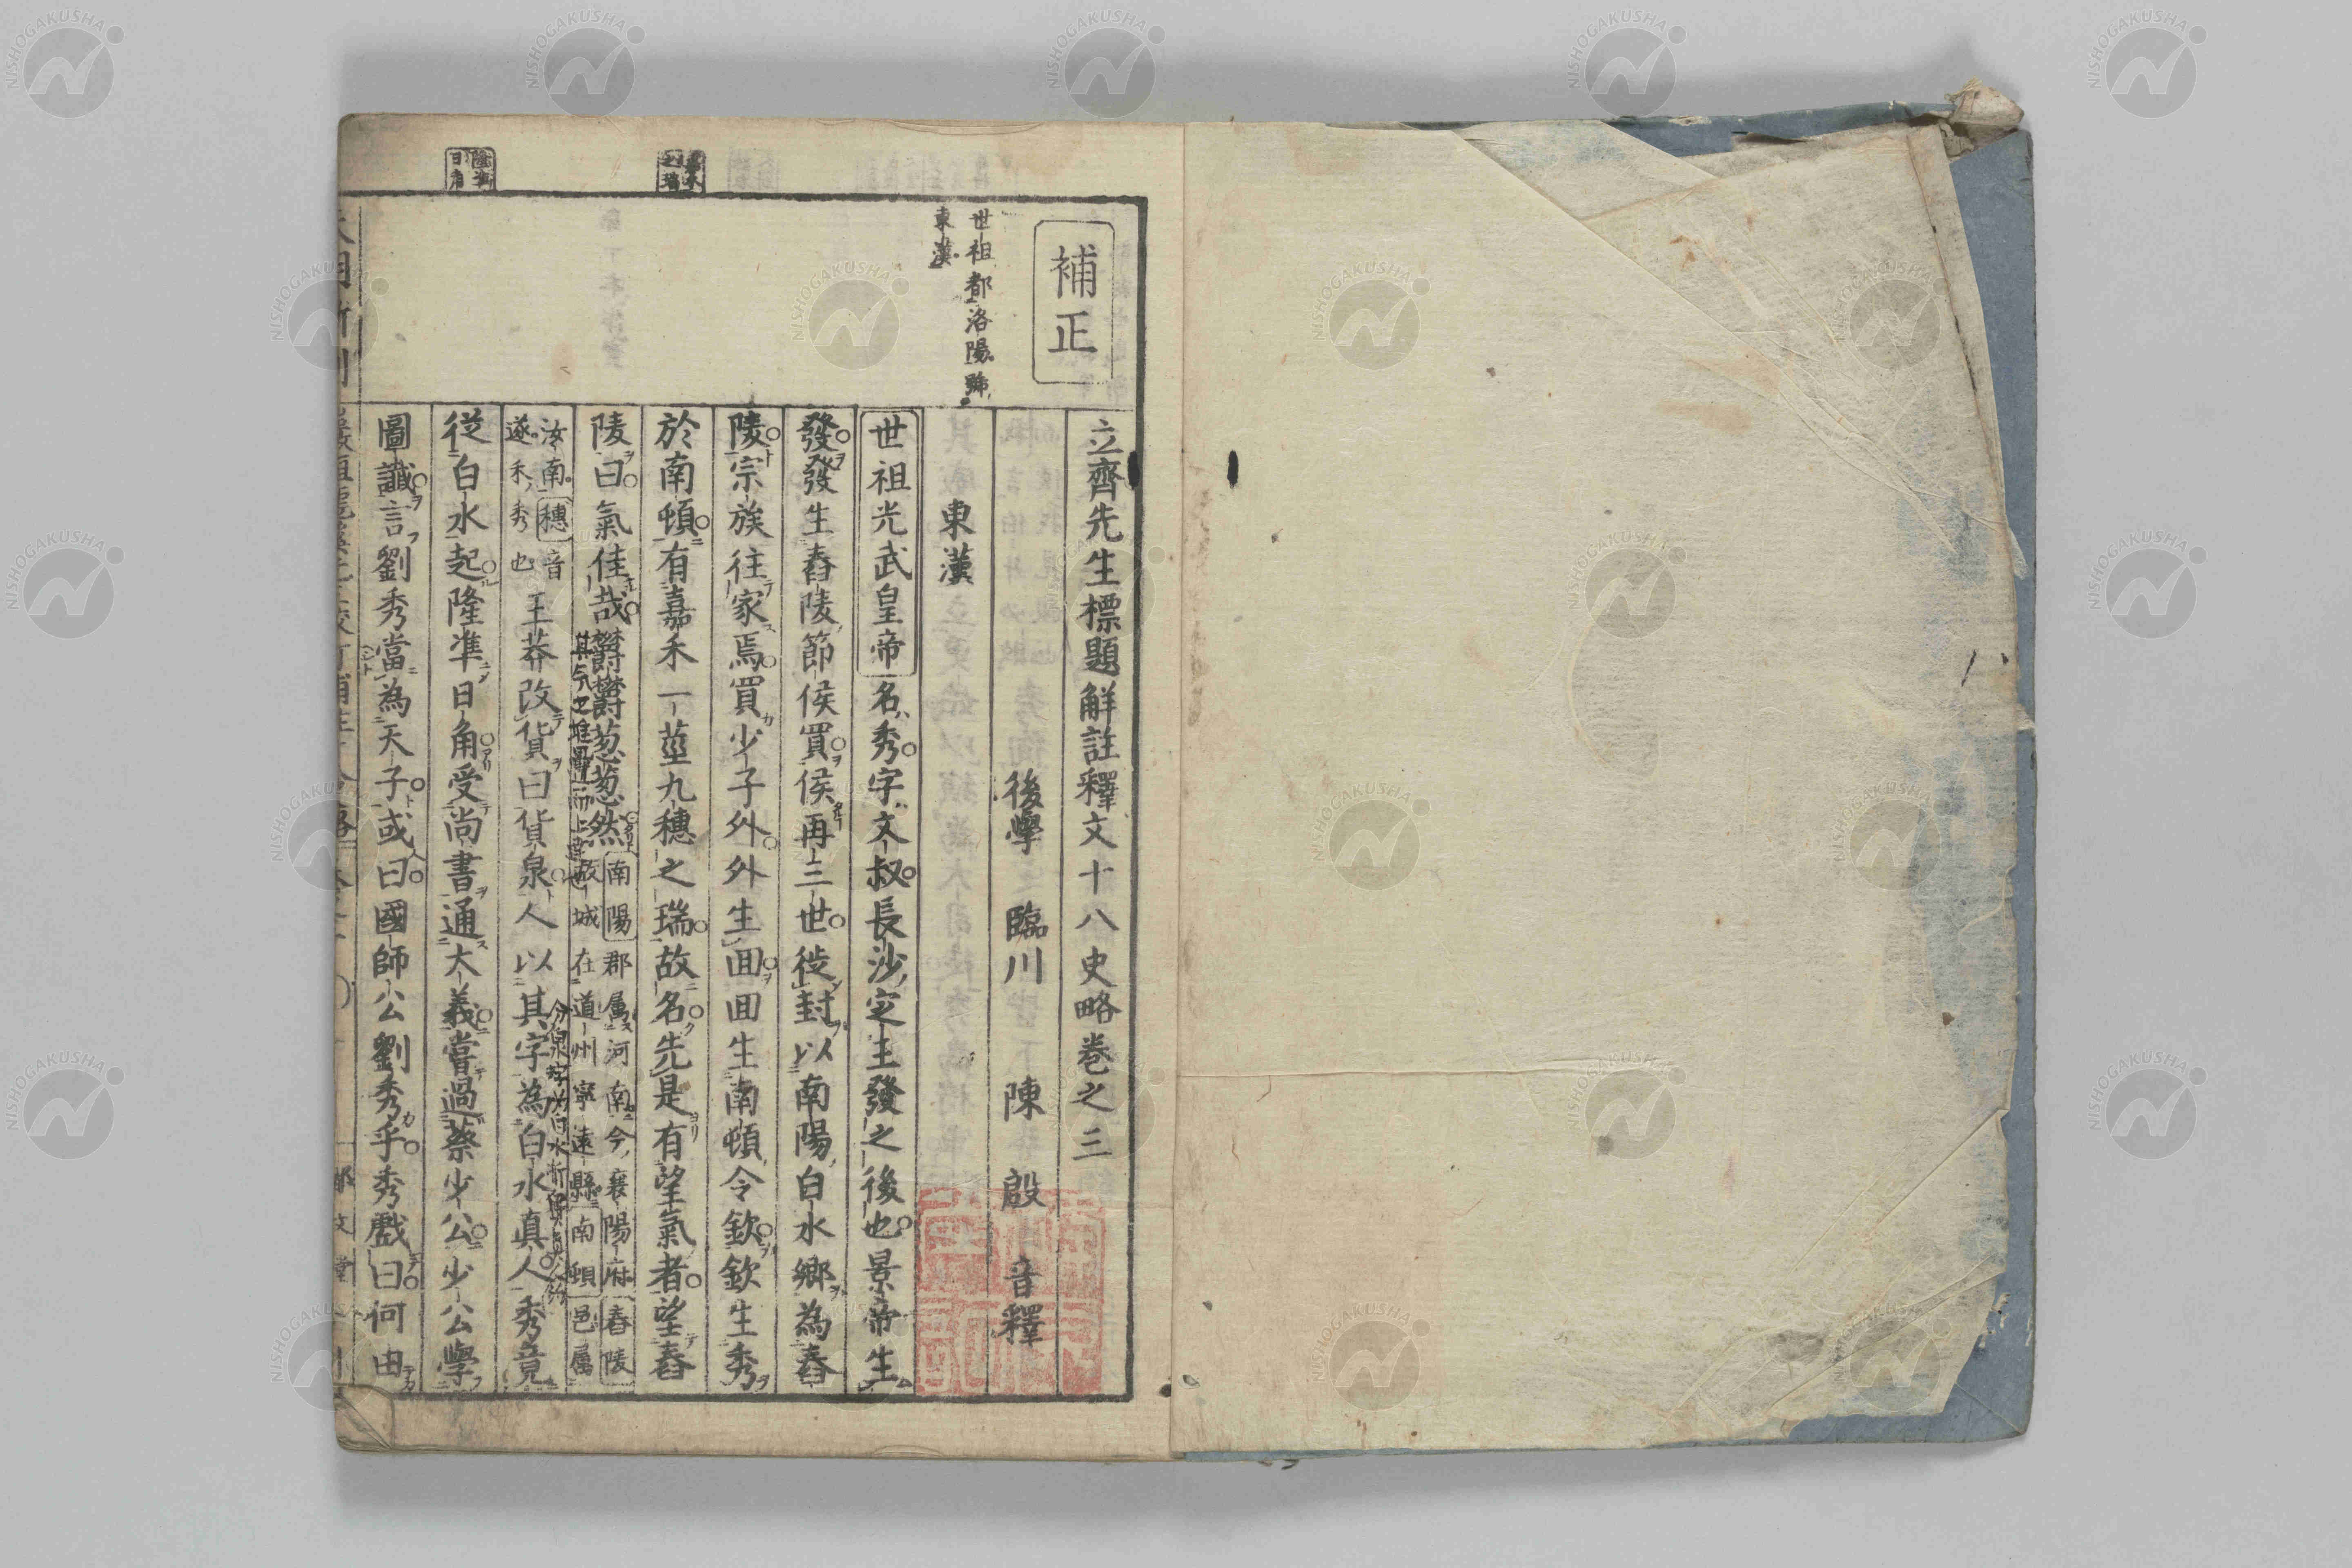 補正
世祖都洛陽號
東漢
立齊先生標題解註釋文十八史略卷之三
後學 臨川 陳 殷 音釋
東漢
世祖光武皇帝名秀字文叔長沙定王發之後也景帝生
發發生舂陵節侯買侯再三世徙封以南陽白水鄉為舂
陵宗族往家焉買少子外外生囬囬生南頓令欽欽生秀
於南頓有嘉禾一莖九穗之瑞故名先是有望氣者望舂
陵曰氣佳哉鬱鬱葱葱然南陽郡属河南今襄陽府舂陵
故城在道州寧遠縣南頓邑属
汝南穗音
遂禾秀也
王莽改貨曰貨泉人以其字為白水真人秀竟
從白水起隆準日角受尚書通大義嘗過蔡少公少公學
圖讖言劉秀當為天子或曰國師公劉秀乎秀戲曰何由
NISHOGAKUSHA